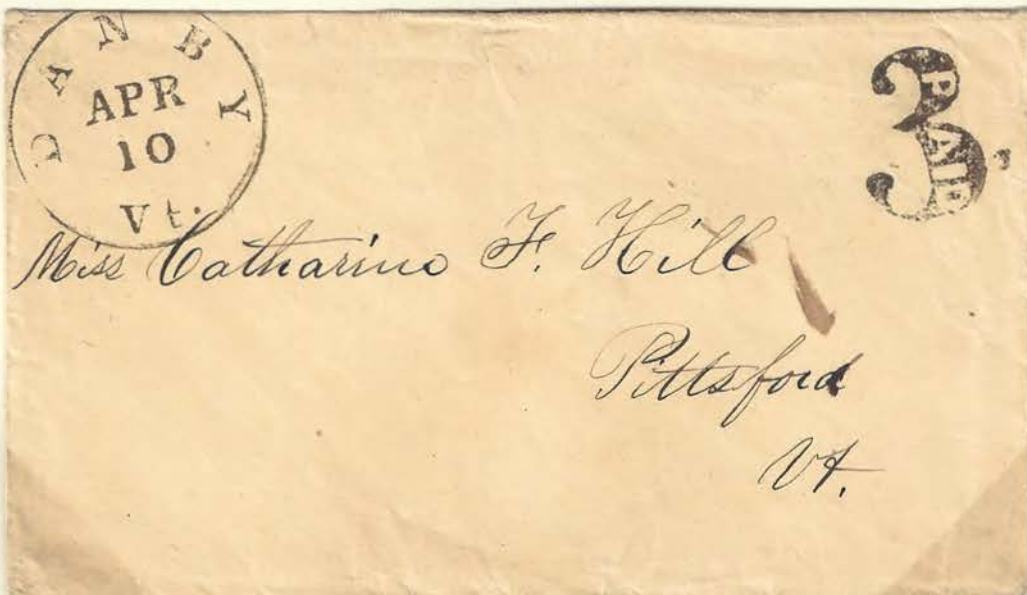 DANBY
APR
10
Vt.
3
PAID
Miss Catharine F. Hill
Pittsford
Vt.